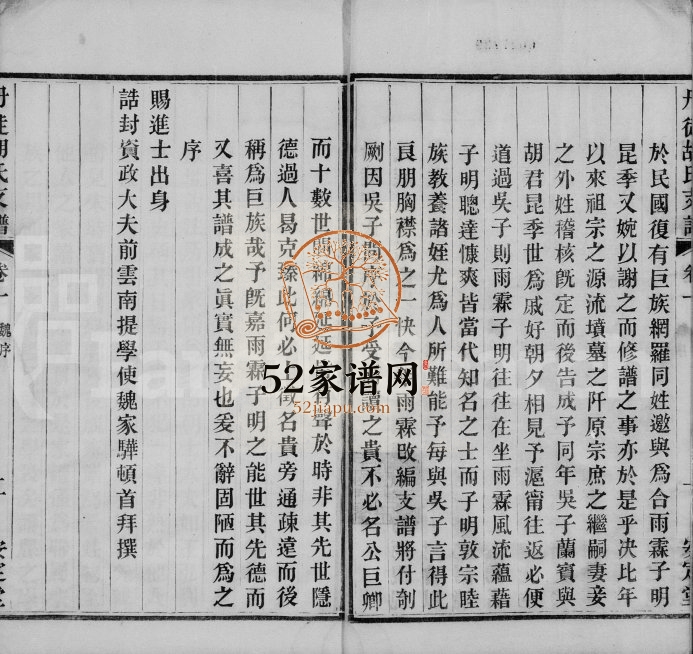 於民國復有巨族網羅同姓邀與爲合雨霖子明
昆季又婉以謝之而修譜之事亦於是乎决比年
以來祖宗之源流墳墓之阡原宗庶之繼嗣妻妾
之外姓稽核旣定而後告成予同年吳子蘭賓與
胡君昆季世爲戚好朝夕相見予滬甯往返必便
道過吳子則雨霖子明往往在坐雨霖風流蘊藉
子明聰達慷爽皆當代知名之士而子明敦宗睦
族教養諸姪尤爲人所難能予每與吳子言得此
良朋胸襟爲之一快今雨霖改編支譜將付剞
劂因吳子問序於予受而讀之貴不必名公巨卿
而十數世聲於時非其先世隱
德過人曷克臻此何必名貴旁通疎遠而後
稱爲巨族哉予旣嘉雨霖子明之能世其先德而
又喜其譜成之眞實無妄也爰不辭固陋而爲之
序
賜進士出身
誥封資政大夫前雲南提學使魏家驊頓首拜撰
卷一
魏序
安定堂
52家谱网
52jiapu.com